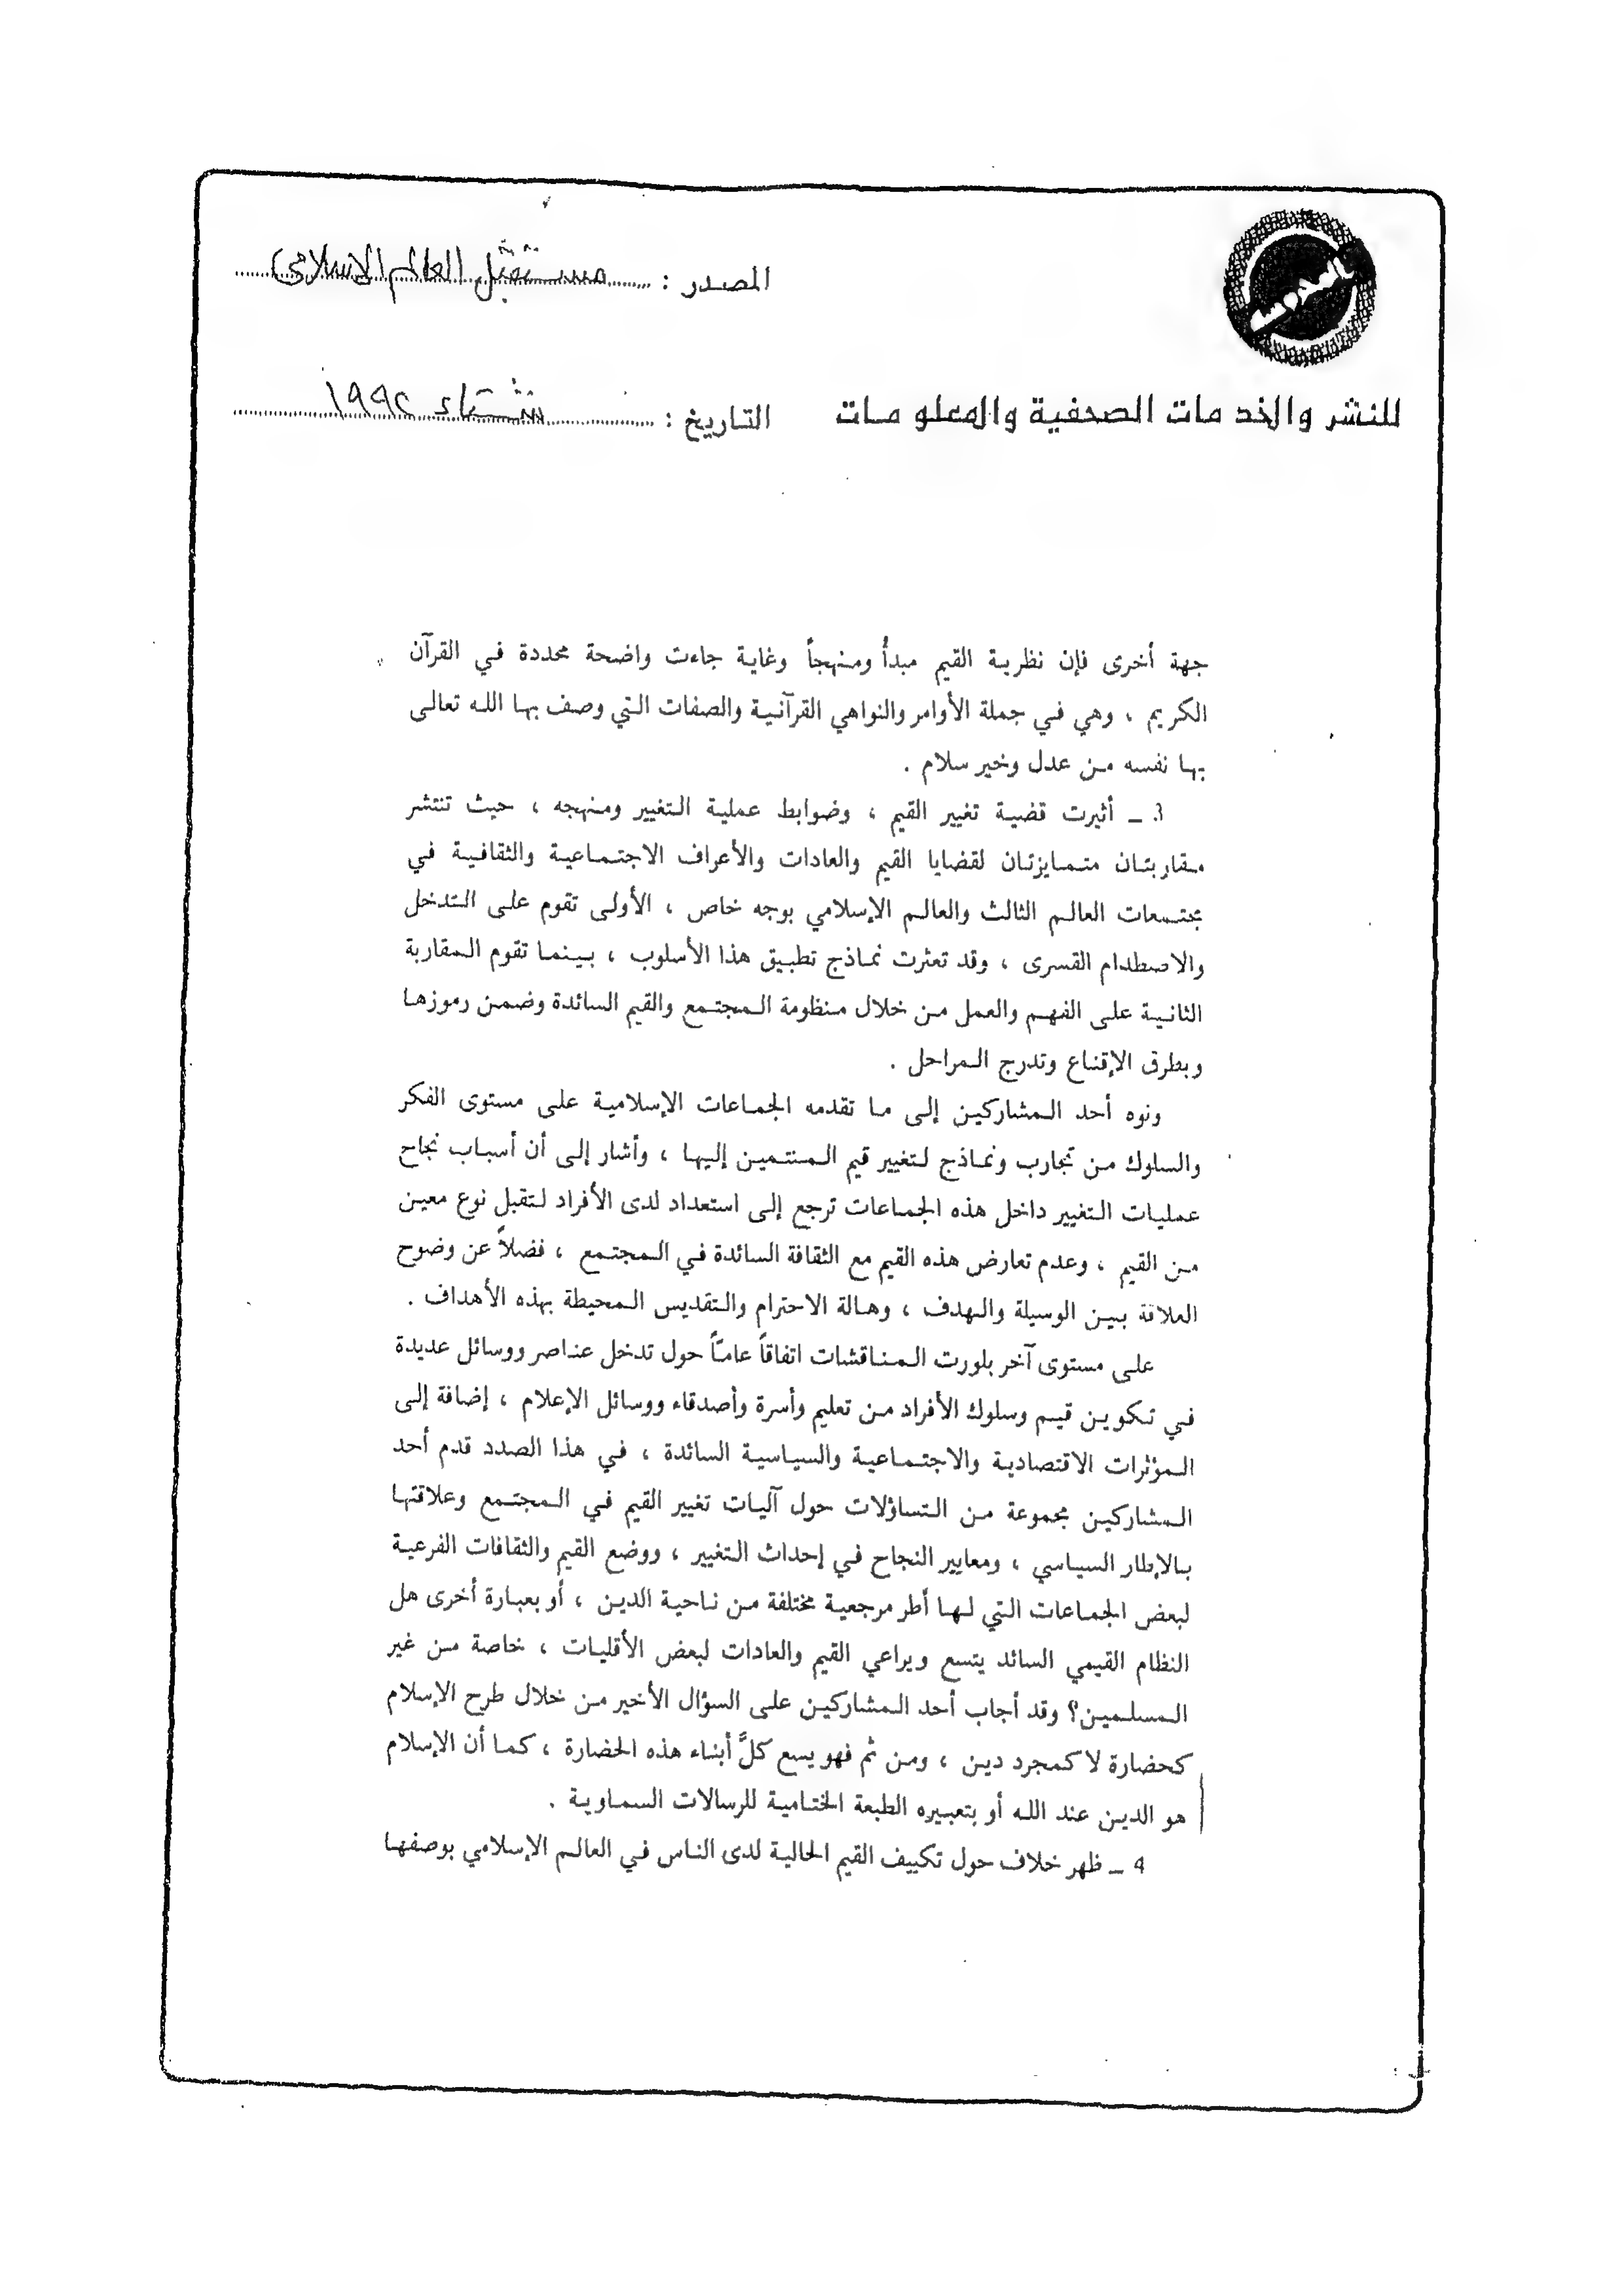 المصدر : مستقبل العالم الإسلامي
للنشر والخدمات الصحفية والمعلومات
التاريخ : شتاء ١٩٩٢
جهة أخرى فإن نظرية القيم مبدأً ومنهجاً وغاية جاءت واضحة محددة في القرآن
الكريم ، وهي في جملة الأوامر والنواهي القرآنية والصفات التي وصف بها الله تعالى
بها نفسه من عدل وخير سلام .
3 ــ أثيرت قضية تغيير القيم ، وضوابط عملية التغيير ومنهجه ، حيث تنتشر
مقاربتان متمايزتان لقضايا القيم والعادات والأعراف الاجتماعية والثقافية في
مجتمعات العالم الثالث والعالم الإسلامي بوجه خاص ، الأولى تقوم على التدخل
والاصطدام القسرى ، وقد تعثرت نماذج تطبيق هذا الأسلوب ، بينما تقوم المقاربة
الثانية على الفهم والعمل من خلال منظومة المجتمع والقيم السائدة وضمن رموزها
وبطرق الإقناع وتدرج المراحل .
ونوه أحد المشاركين إلى ما تقدمه الجماعات الإسلامية على مستوى الفكر
والسلوك من تجارب ونماذج لتغيير قيم المنتمين إليها ، وأشار إلى أن أسباب نجاح
عمليات التغيير داخل هذه الجماعات ترجع إلى استعداد لدى الأفراد لتقبل نوع معين
من القيم ، وعدم تعارض هذه القيم مع الثقافة السائدة في المجتمع ، فضلاً عن وضوح
العلاقة بين الوسيلة والهدف ، وهالة الاحترام والتقديس المحيطة بهذه الأهداف .
على مستوى آخر بلورت المناقشات اتفاقاً عامّاً حول تدخل عناصر ووسائل عديدة
في تكوين قيم وسلوك الأفراد من تعليم وأسرة وأصدقاء ووسائل الإعلام ، إضافة إلى
المؤثرات الاقتصادية والاجتماعية والسياسية السائدة ، في هذا الصدد قدم أحد
المشاركين مجموعة من التساؤلات حول آليات تغيير القيم في المجتمع وعلاقتها
بالإطار السياسي ، ومعايير النجاح في إحداث التغيير ، ووضع القيم والثقافات الفرعية
لبعض الجماعات التي لها أطر مرجعية مختلفة من ناحية الدين ، أو بعبارة أخرى هل
النظام القيمي السائد يتسع ويراعي القيم والعادات لبعض الأقليات ، خاصة من غير
المسلمين؟ وقد أجاب أحد المشاركين على السؤال الأخير من خلال طرح الإسلام
كحضارة لا كمجرد دين ، ومن ثم فهو يسع كلَّ أبناء هذه الحضارة ، كما أن الإسلام
هو الدين عند الله أو بتعبيره الطبعة الختامية للرسالات السماوية .
4 ــ ظهر خلاف حول تكييف القيم الحالية لدى الناس في العالم الإسلامي بوصفها